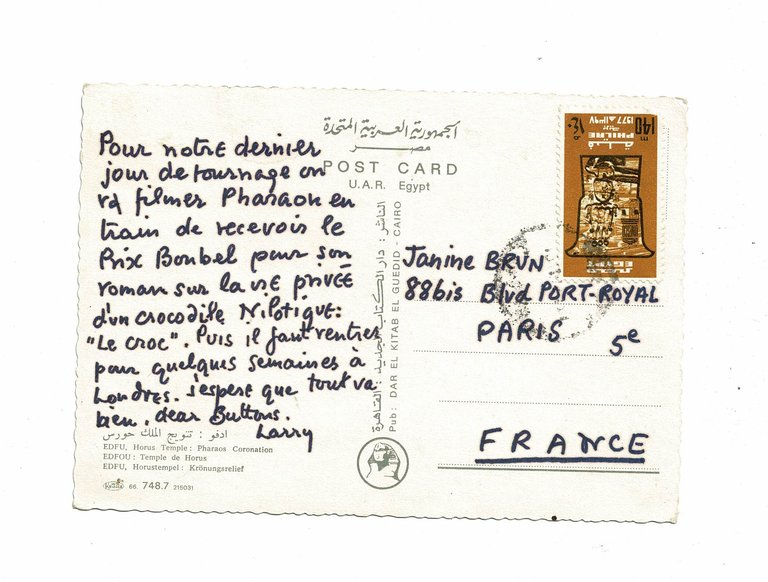 Pour notre dernier
jour de tournage on
va filmer Pharaon en
train de recevoir le
Prix Bonbel pour son
roman sur la vie privée
d'un crocodile Nilotique:
"Le croc". Puis il faut rentrer
pour quelques semaines à
Londres. J'espere que tout va
bien, dear Buttons.
Larry
ادفو : تتويج الملك حورس
EDFU, Horus Temple : Pharaos Coronation
EDFOU : Temple de Horus
EDFU, Horustempel : Krönungsrelief
66. 748.7 215031
الجمهورية العربية المتحدة
مصر
POST CARD
U.A.R. Egypt
الناشر : دار الكتاب الجديد : القاهرة
Pub : DAR EL KITAB EL GUEDID - CAIRO
140 m
١٤٠
PHILAE
1977 ١٣٩٧
فيلة
EGYPT
Janine BRUN
88bis Blvd PORT-ROYAL
PARIS 5e
FRANCE